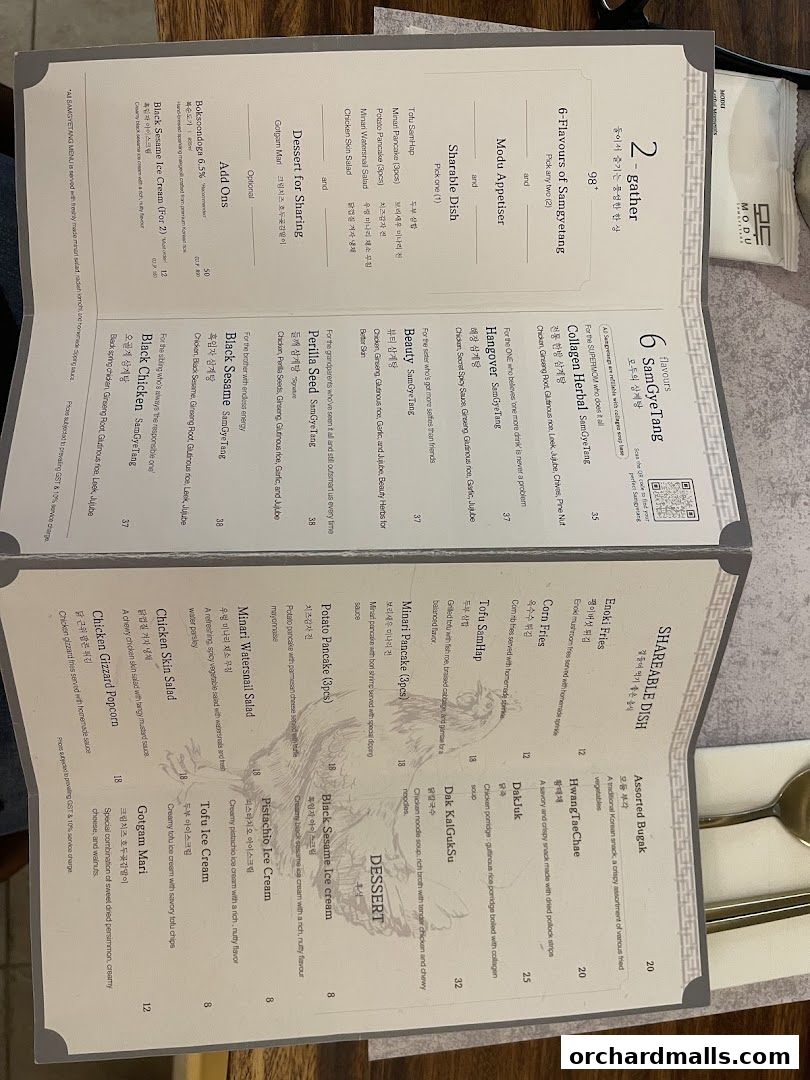 2 - gather
둘이서 즐기는 풍성한 한 상
98+
6-Flavours of Samgyetang
Pick any two (2)
and
Modu Appetiser
and
Sharable Dish
Pick one (1)
Tofu SamHap 두부 삼합
Minari Pancake (3pcs) 보리새우 미나리 전
Potato Pancake (3pcs) 치즈감자 전
Minari Watersnail Salad 우렁 미나리 채소 무침
Chicken Skin Salad 닭껍질 겨자 냉채
and
Dessert for Sharing
Gotgam Mari 크림치즈 호두곶감말이
Optional
Add Ons
Boksoondoga 6.5% *Recommended 50
복순도가
Hand-brewed sparkling makgeolli crafted from premium Korean rice.
Black Sesame Ice Cream (For 2) *Must order! 12
흑임자 아이스크림
Creamy black sesame ice cream with a rich, nutty flavour
*All SAMGYETANG MENU is served with freshly made minari salad, radish kimchi, and homemade dipping sauce.
6 flavours
SamGyeTang
모두의 삼계탕
Scan the QR code to find your
perfect Samgyetang
(All Samgyetangs are refillable with collagen soup base)
For the SUPERMOM who does it all
Collagen Herbal SamGyeTang 35
전통 한방 삼계탕
Chicken, Ginseng Root, Glutinous rice, Leek, Jujube, Chives, Pine Nut
For the ONE who believes 'one more drink' is never a problem
Hangover SamGyeTang 37
해장 삼계탕
Chicken, Secret Spicy Sauce, Ginseng, Glutinous rice, Garlic, Jujube
For the sister who's got more selfies than friends
Beauty SamGyeTang 37
뷰티 삼계탕
Chicken, Ginseng, Glutinous rice, Garlic, and Jujube, Beauty Herbs for
Better Skin
For the grandparents who've seen it all and still outsmart us every time
Perilla Seed SamGyeTang 38
들깨 삼계탕 *Signature
Chicken, Perilla Seeds, Ginseng, Glutinous rice, Garlic, and Jujube
For the brother with endless energy
Black Sesame SamGyeTang 38
흑임자 삼계탕
Chicken, Black Sesame, Ginseng Root, Glutinous rice, Leek, Jujube
For the sibling who's always 'the responsible one'
Black Chicken SamGyeTang 37
오골계 삼계탕
Black spring chicken, Ginseng Root, Glutinous rice, Leek, Jujube
Prices subject to prevailing GST & 10% service charge.
SHAREABLE DISH
곁들여 먹기 좋은 음식
Enoki Fries 12
팽이버섯 튀김
Enoki mushroom fries served with homemade sprinkle
Corn Fries 12
옥수수 튀김
Corn rib fries served with homemade sprinkle.
Tofu SamHap 18
두부 삼합
Grilled tofu with fish roe, braised cabbage, and perillas for a
balanced flavor.
Minari Pancake (3pcs) 18
보리새우 미나리 전
Minari pancake with bori shrimp served with special dipping
sauce
Potato Pancake (3pcs) 18
치즈감자 전
Potato pancake with parmesan cheese served with truffle
mayonnaise
Minari Watersnail Salad 18
우렁 미나리 채소 무침
A refreshing, spicy vegetable salad with watersnails and fresh
water parsley.
Chicken Skin Salad 18
닭껍질 겨자 냉채
A chewy chicken skin salad with tangy mustard sauce
Chicken Gizzard Popcorn 18
닭 근위 팝콘 튀김
Chicken gizzard fries served with homemade sauce
Prices subjected to prevailing GST & 10% service charge.
Assorted Bugak 20
모둠 부각
A traditional Korean snack, a crispy assortment of various fried
vegetables
HwangTaeChae 20
황태채
A savory and crispy snack made with dried pollock strips
DakJuk 25
닭죽
Chicken porridge - glutinous rice porridge boiled with collagen
soup
Dak KalGukSu 32
닭칼국수
Chicken noodle soup, rich broth with tender chicken and chewy
noodles.
DESSERT
후식
Black Sesame Ice cream 8
흑임자 아이스크림
Creamy black sesame ice cream with a rich, nutty flavour
Pistachio Ice Cream 8
피스타치오 아이스크림
Creamy pistachio ice cream with a rich, nutty flavor
Tofu Ice Cream 8
두부 아이스크림
Creamy tofu ice cream with savory tofu chips
Gotgam Mari 12
크림치즈 호두곶감말이
Special combination of sweet dried persimmon, creamy
cheese, and walnuts.
MODU
MODU
SAMGYETANG
orchardmalls.com